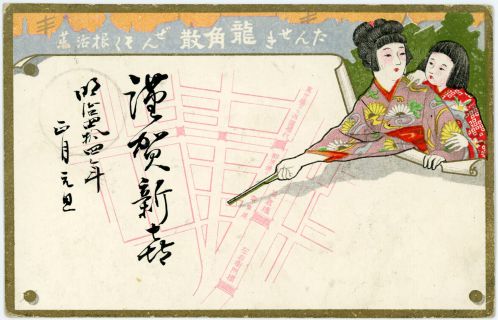 たんせき龍角散ぜんそく根治薬
謹賀新喜
明治四拾四年
正月元旦